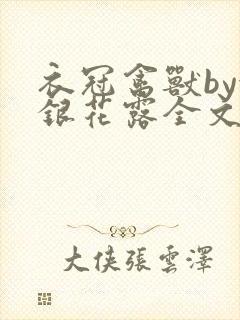 衣冠禽獸by
銀花露全文
大侠張雲澤